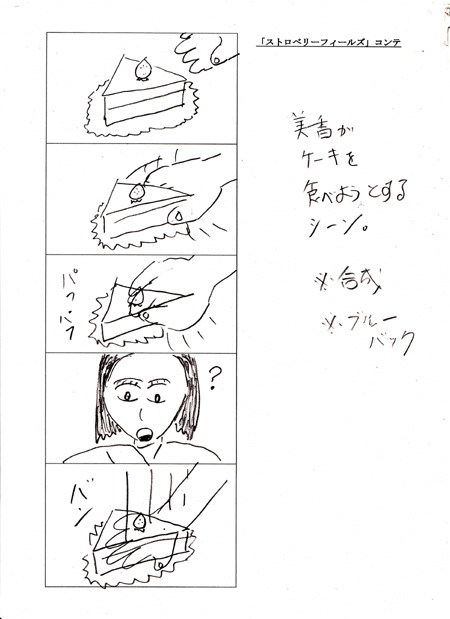 「ストロベリーフィールズ」コンテ
美香が
ケーキを
食べようとする
シーン。
※合成
※ブルー
バック
パフパフ
?
バン